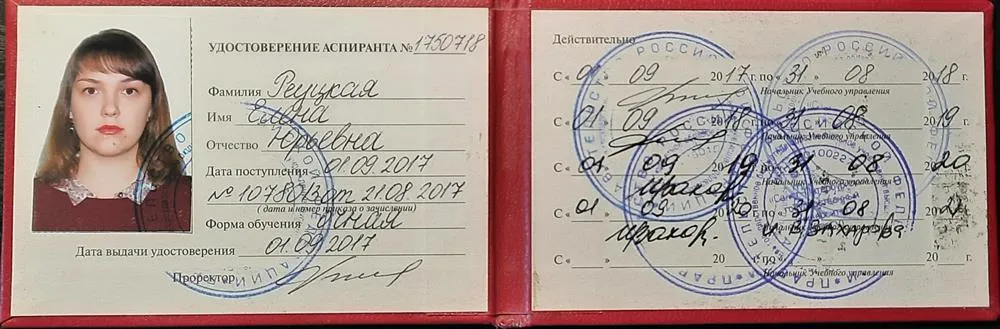 УДОСТОВЕРЕНИЕ АСПИРАНТА № 1750718
Фамилия Реуцкая
Имя Елена
Отчество Юрьевна
Дата поступления 01.09.2017
№ 10780/3 от 21.08.2017
(дата и номер приказа о зачислении)
Форма обучения очная
Дата выдачи удостоверения 01.09.2017
Проректор
Действительно
С « 01 » 09 2017 г. по « 31 » 08 2018 г.
Начальник Учебного управления
С « 01 » 09 2018 г. по « 31 » 08 2019 г.
Начальник Учебного управления
С « 01 » 09 2019 г. по « 31 » 08 2020 г.
Начальник Учебного управления
С « 01 » 09 2020 г. по « 31 » 08 20
С « » 20 г. по « » 20 г.
Начальник Учебного управления